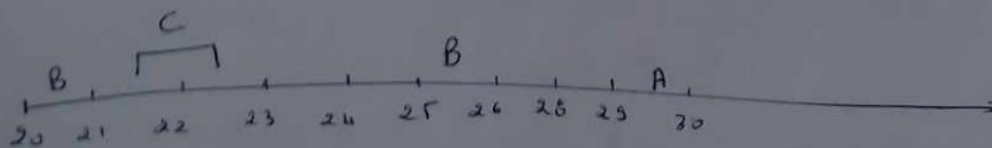 C
B B A
20 21 22 23 24 25 26 28 29 30